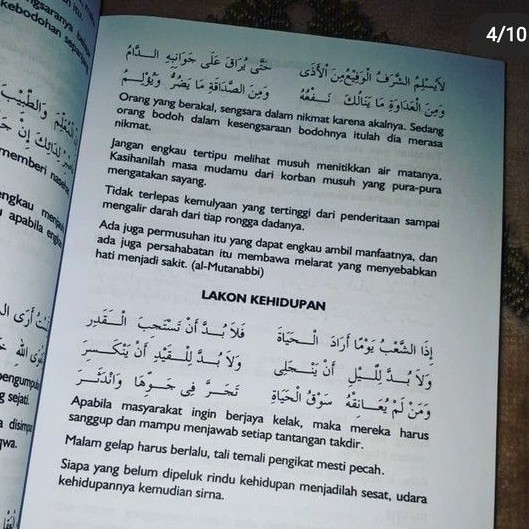 4/10
لَايَسْلِمُ الشَّرَفُ الْوَفِيْعُ مِنَ الْأَذَى حَتَّى يُرَاقَ عَلَى جَوَانِبِهِ الـــدَّامُ
وَمِنَ الْعَدَاوَةِ مَا يَنَالُكَ نَـفْعُهُ وَمِنَ الصَّدَاقَةِ مَا يَضُرُّ وَيُؤْلِــمُ
Orang yang berakal, sengsara dalam nikmat karena akalnya. Sedang
orang bodoh dalam kesengsaraan bodohnya itulah dia merasa
nikmat.
Jangan engkau tertipu melihat musuh menitikkan air matanya.
Kasihanilah masa mudamu dari korban musuh yang pura-pura
mengatakan sayang.
Tidak terlepas kemulyaan yang tertinggi dari penderitaan sampai
mengalir darah dari tiap rongga dadanya.
Ada juga permusuhan itu yang dapat engkau ambil manfaatnya, dan
ada juga persahabatan itu membawa melarat yang menyebabkan
hati menjadi sakit. (al-Mutanabbi)
LAKON KEHIDUPAN
إِذَا الشَّعْبُ يَوْمًا أَرَادَ الْـــحَيَاةَ فَلَا بُــدَّ أَنْ تَسْتَجِبَ الْــقَدِرِ
وَلَا بُــدَّ لِلَّــيْلِ أَنْ يَنْــجَلِى وَلَا بُــدَّ لِلْــقَيْدِ أَنْ يَنْكَــسِرَ
وَمَنْ لَمْ يُعَــانِقْهُ سَوْقُ الْحَيَاةِ تَجَــرَّ فِى جَــوِّهَا وَانْدَثَــرَ
Apabila masyarakat ingin berjaya kelak, maka mereka harus
sanggup dan mampu menjawab setiap tantangan takdir.
Malam gelap harus berlalu, tali temali pengikat mesti pecah.
Siapa yang belum dipeluk rindu kehidupan menjadilah sesat, udara
kehidupannya kemudian sirna.